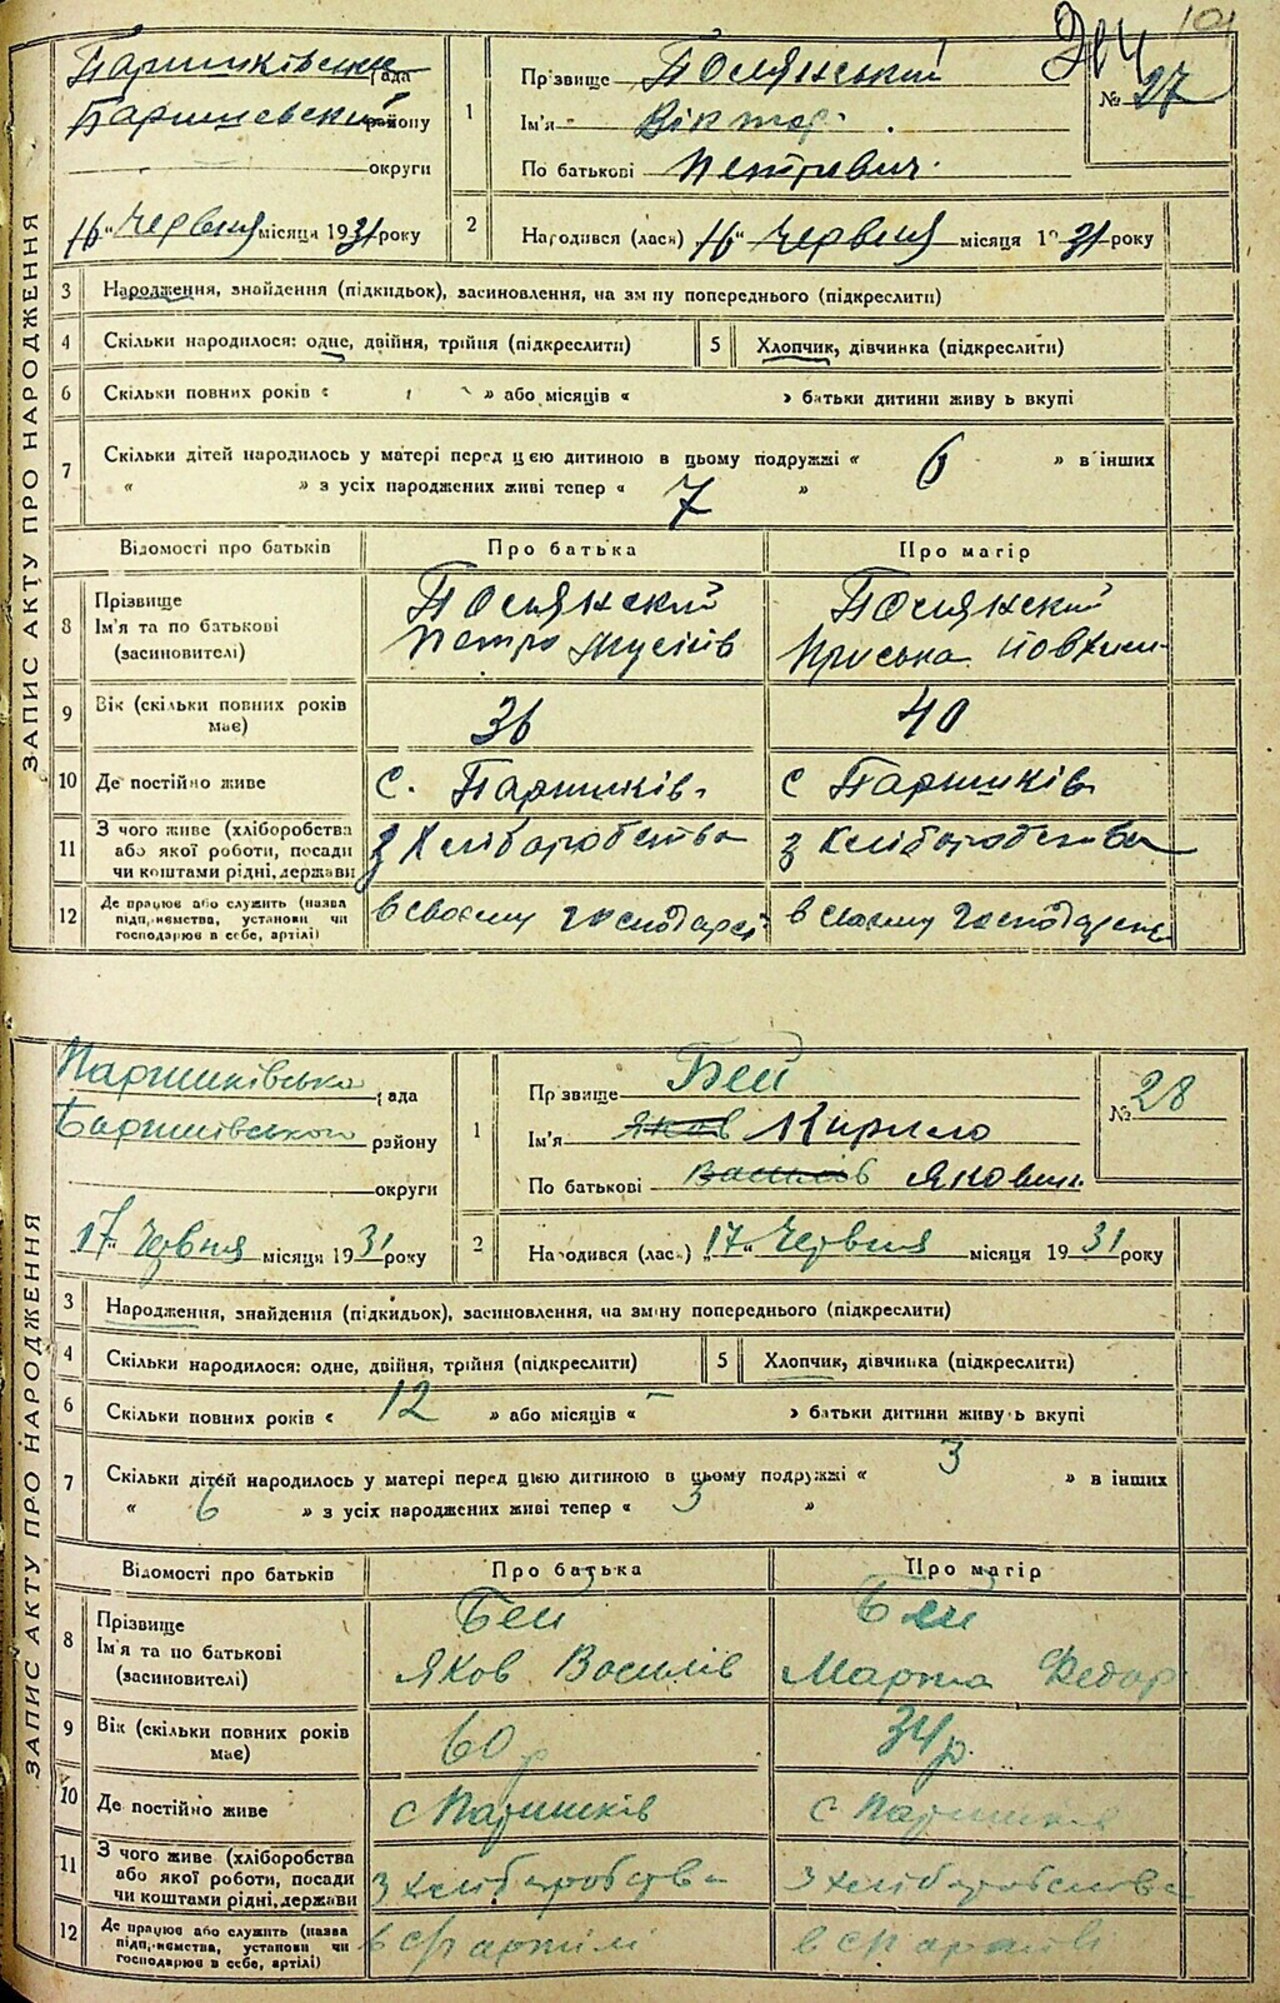 101
ЗАПИС АКТУ ПРО НАРОДЖЕННЯ
Паришківська рада
Баришевский району
округи
16 " Червня місяця 1931 року
1
Прізвище Полянський
Ім'я Віктор
По батькові Петрович
№ 27
2
Народився (лася) 16 " Червня місяця 1931 року
3 Народження, знайдення (підкидьок), засиновлення, на зміну попереднього (підкреслити)
4 Скільки народилося: одне, двійня, трійня (підкреслити) 5 Хлопчик, дівчинка (підкреслити)
6 Скільки повних років « » або місяців « » батьки дитини живуть вкупі
7 Скільки дітей народилось у матері перед цією дитиною в цьому подружжі « 6 » в інших
« » з усіх народжених живі тепер « 7 »
Відомості про батьків Про батька Про матір
8 Прізвище Полянский Полянский
Ім'я та по батькові Петро Приська
(засиновителі)
9 Вік (скільки повних років має) 36 40
10 Де постійно живе с. Паришків с Паришків
11 З чого живе (хліборобства або якої роботи, посади чи коштами рідні, держави З Хліборобства з Хліборобства
12 Де працює або служить (назва підприємства, установи чи господарює в себе, артілі) в своєму господарст в своєму
ЗАПИС АКТУ ПРО НАРОДЖЕННЯ
Паришківська рада
Баришівського району
округи
17 " Червня місяця 1931 року
1
Прізвище Бей
Ім'я Яков Кирило
По батькові Василів Якович
№ 28
2
Народився (лася) „17 " Червня місяця 1931 року
3 Народження, знайдення (підкидьок), засиновлення, на зміну попереднього (підкреслити)
4 Скільки народилося: одне, двійня, трійня (підкреслити) 5 Хлопчик, дівчинка (підкреслити)
6 Скільки повних років « 12 » або місяців « – » батьки дитини живуть вкупі
7 Скільки дітей народилось у матері перед цією дитиною в цьому подружжі « 3 » в інших
« 6 » з усіх народжених живі тепер « 3 »
Відомості про батьків Про батька Про матір
8 Прізвище Бей Бей
Ім'я та по батькові Яков Василів Марта Федор
(засиновителі)
9 Вік (скільки повних років має) 60 р 34 р.
10 Де постійно живе с Паришків с Паришків
11 З чого живе (хліборобства або якої роботи, посади чи коштами рідні, держави З хліборобства З хліборобства
12 Де працює або служить (назва підприємства, установи чи господарює в себе, артілі) в с/г артілі в с/г артілі